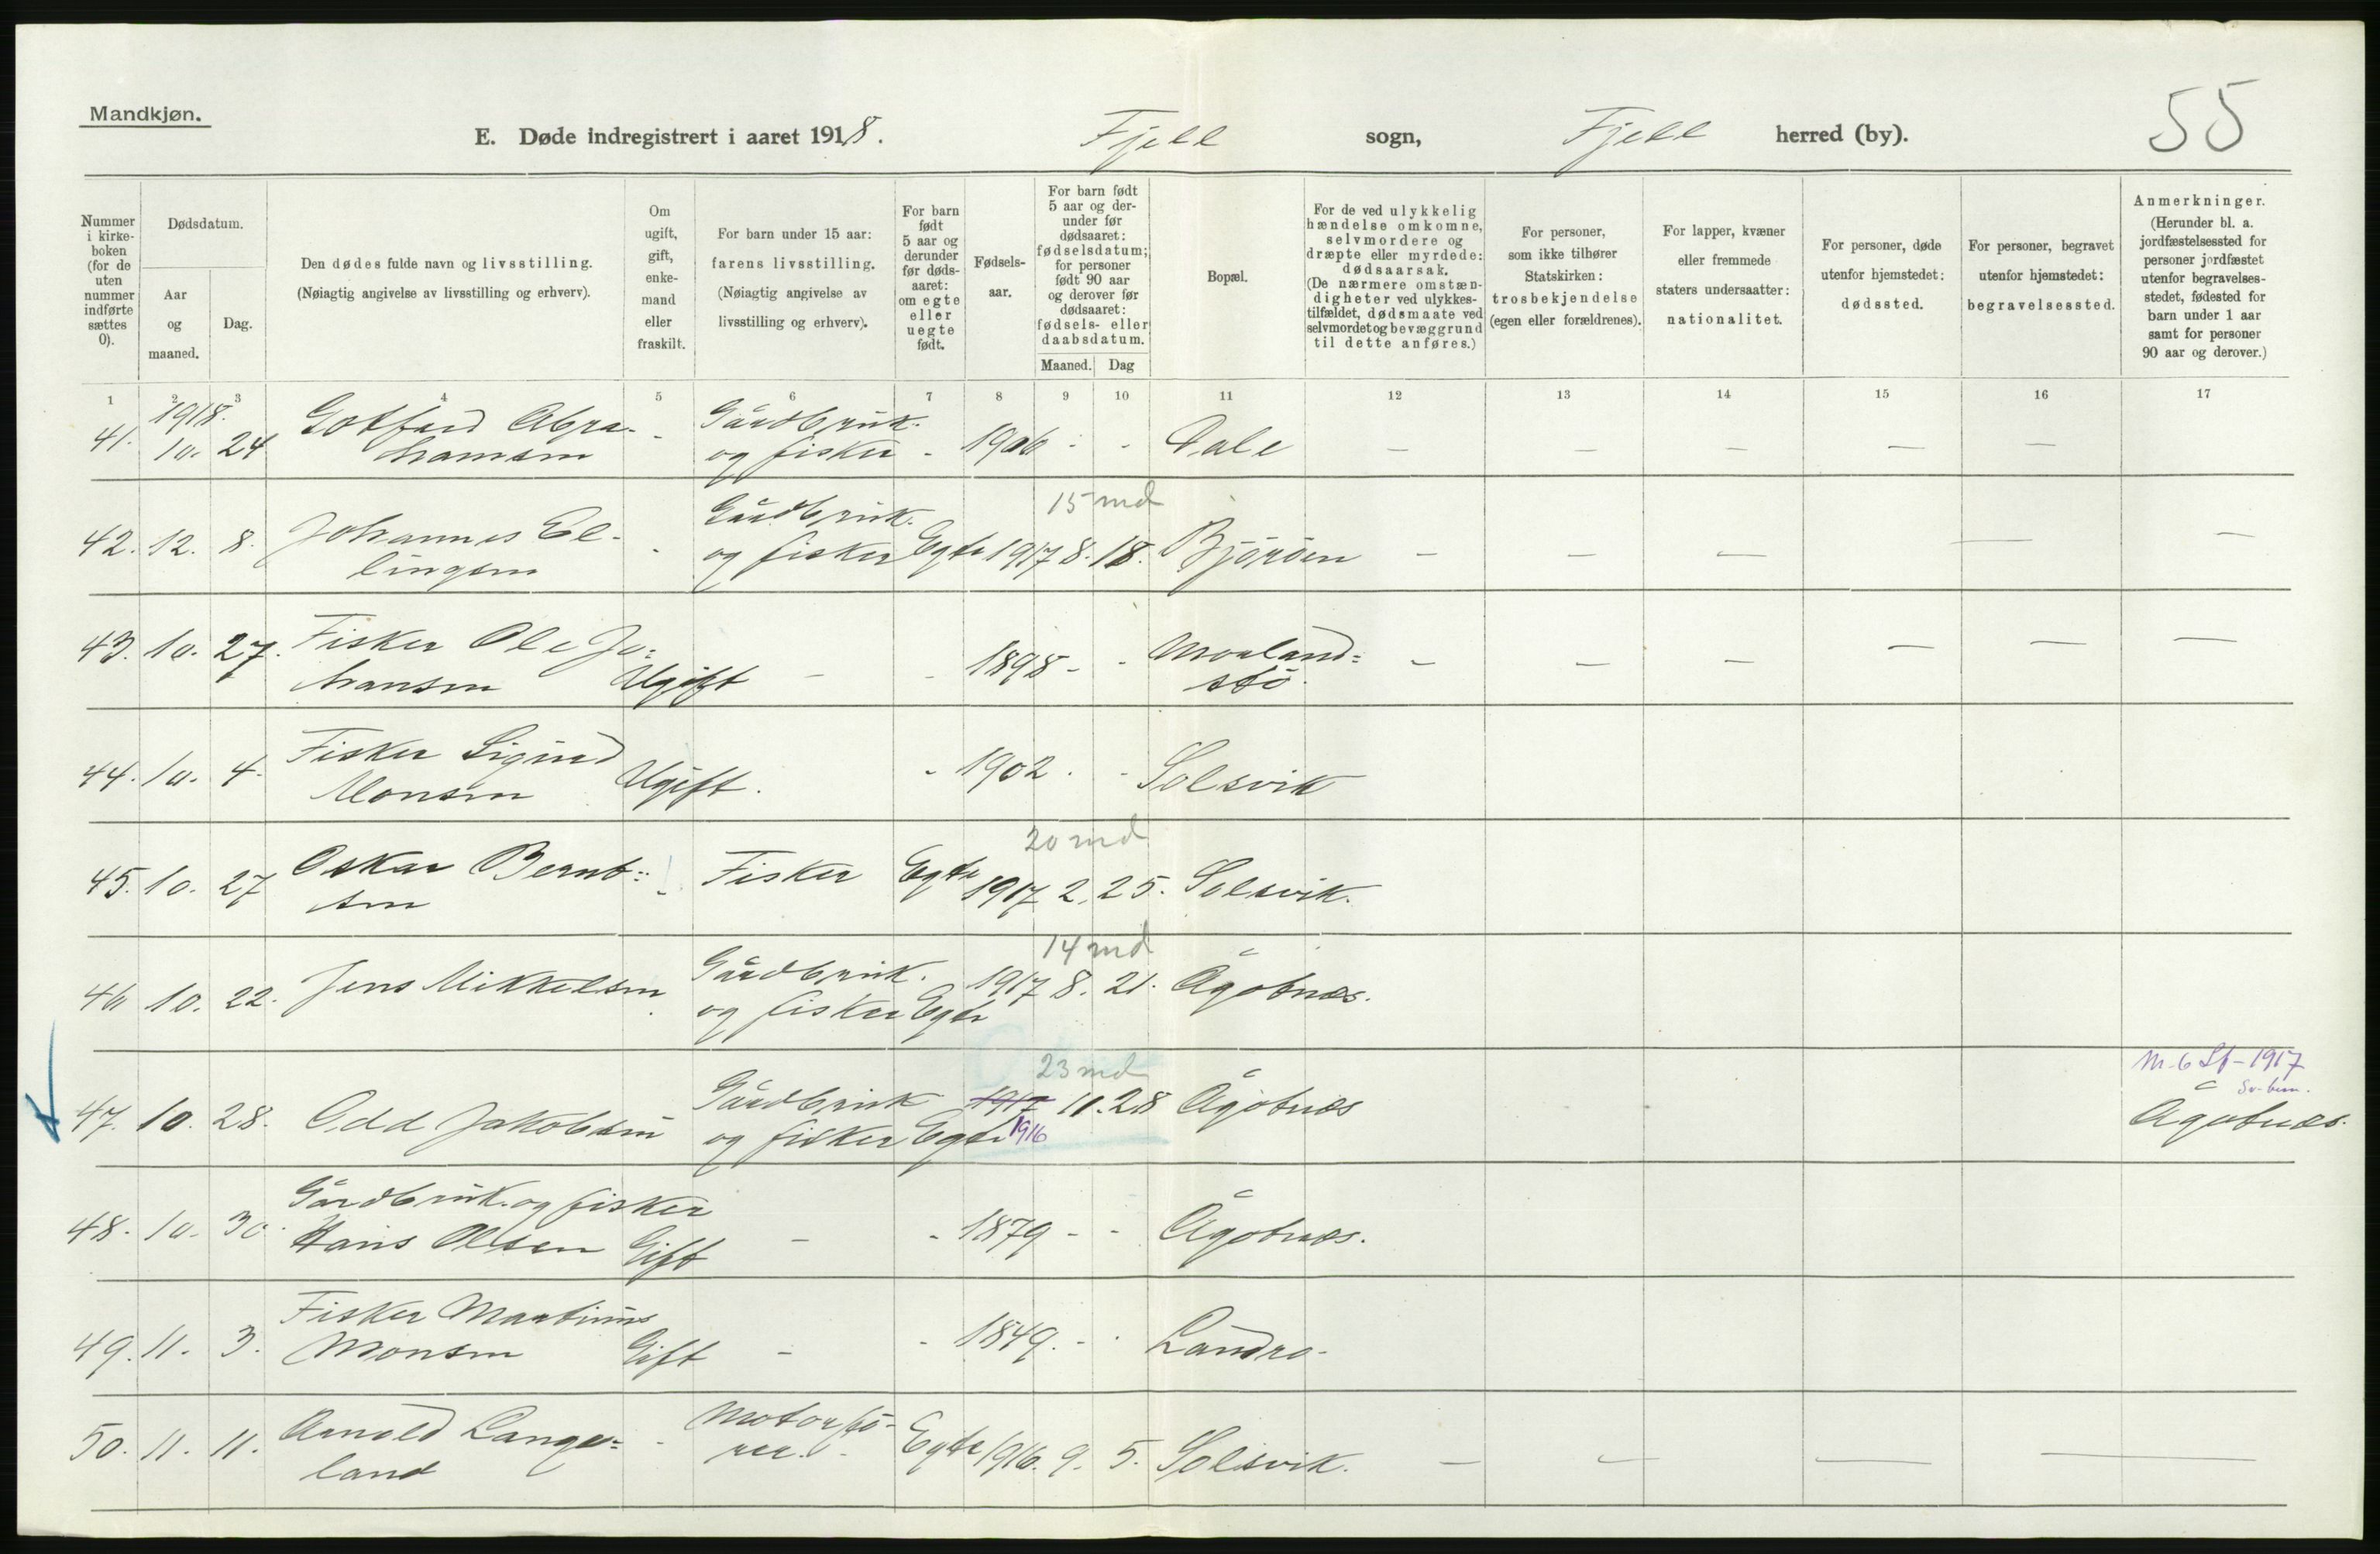 Mandkjøn.
E. Døde indregistrert i aaret 1918. Fjell sogn, Fjell herred (by). 55
Nummer i kirke-boken (for de uten nummer indførte sættes 0).
Dødsdatum.
Aar og maaned.
Dag.
Den dødes fulde navn og livsstilling.
(Nøiagtig angivelse av livsstilling og erhverv).
Om ugift, gift, enke-mand eller fraskilt.
For barn under 15 aar:
farens livsstilling.
(Nøiagtig angivelse av livsstilling og erhverv).
For barn født 5 aar og derunder før døds-aaret: om egte eller uegte født.
Fødsels-aar.
For barn født 5 aar og der-under før dødsaaret: fødselsdatum; for personer født 90 aar og derover før dødsaaret: fødsels- eller daabsdatum.
Maaned. Dag
Bopæl.
For de ved ulykkelig hændelse omkomne, selvmordere og dræpte eller myrdede: dødsaarsak. (De nærmere omstæn-digheter ved ulykkes-tilfældet, dødsmaate ved selvmordet og bevæggrund til dette anføres.)
For personer, som ikke tilhører Statskirken: trosbekjendelse (egen eller forældrenes).
For lapper, kvæner eller fremmede staters undersaatter: nationalitet.
For personer, døde utenfor hjemstedet: dødssted.
For personer, begravet utenfor hjemstedet: begravelsessted.
Anmerkninger.
(Herunder bl. a. jordfæstelsessted for personer jordfæstet utenfor begravelses-stedet, fødested for barn under 1 aar samt for personer 90 aar og derover.)
1 2 3 4 5 6 7 8 9 10 11 12 13 14 15 16 17
1918.
41. 10. 24 Gotfard Abra- - Gårdbruk. - 1906 - - Dale — — — — —
hamsen og fisker
15 md
42. 12. 8. Johannes El- - Gårdbruk. Egte 1917 8. 18. Bjórøen — — — — — —
lingsen og fisker
43. 10. 27. Fisker Ole Jo= Ugift - - 1898 - - Morland= — — — — — —
hansen stø.
44. 10. 4. Fisker Sigurd Ugift. - 1902 - - Solsvik
Monsen
20 md
45. 10. 27 Oskar Bernt= - Fisker Egte 1917 2. 25. Solsvik.
sen
14 md
46 10. 22. Jens Mikkelsen Gårdbruk. 1917 8. 21. Ågotnæs.
og fisker Egte
23 md M. 6 Lf - 1917
47. 10. 28. Odd Jakobsen Gårdbruk 1917 11. 28 Ågotnæs Ågotnæs.
og fisker Egte 1916
Gårdbruk. og fisker
48. 10. 30. Hans Olsen Gift - - 1879 - - Ågotnæs.
49. 11. 3. Fisker Martinus Gift - - 1849. - - Landro-
Monsen
50. 11. 11. Arnold Lange= - Motorfø- Egte 1916. 9. 5. Solsvik. — — — —
land rer. -